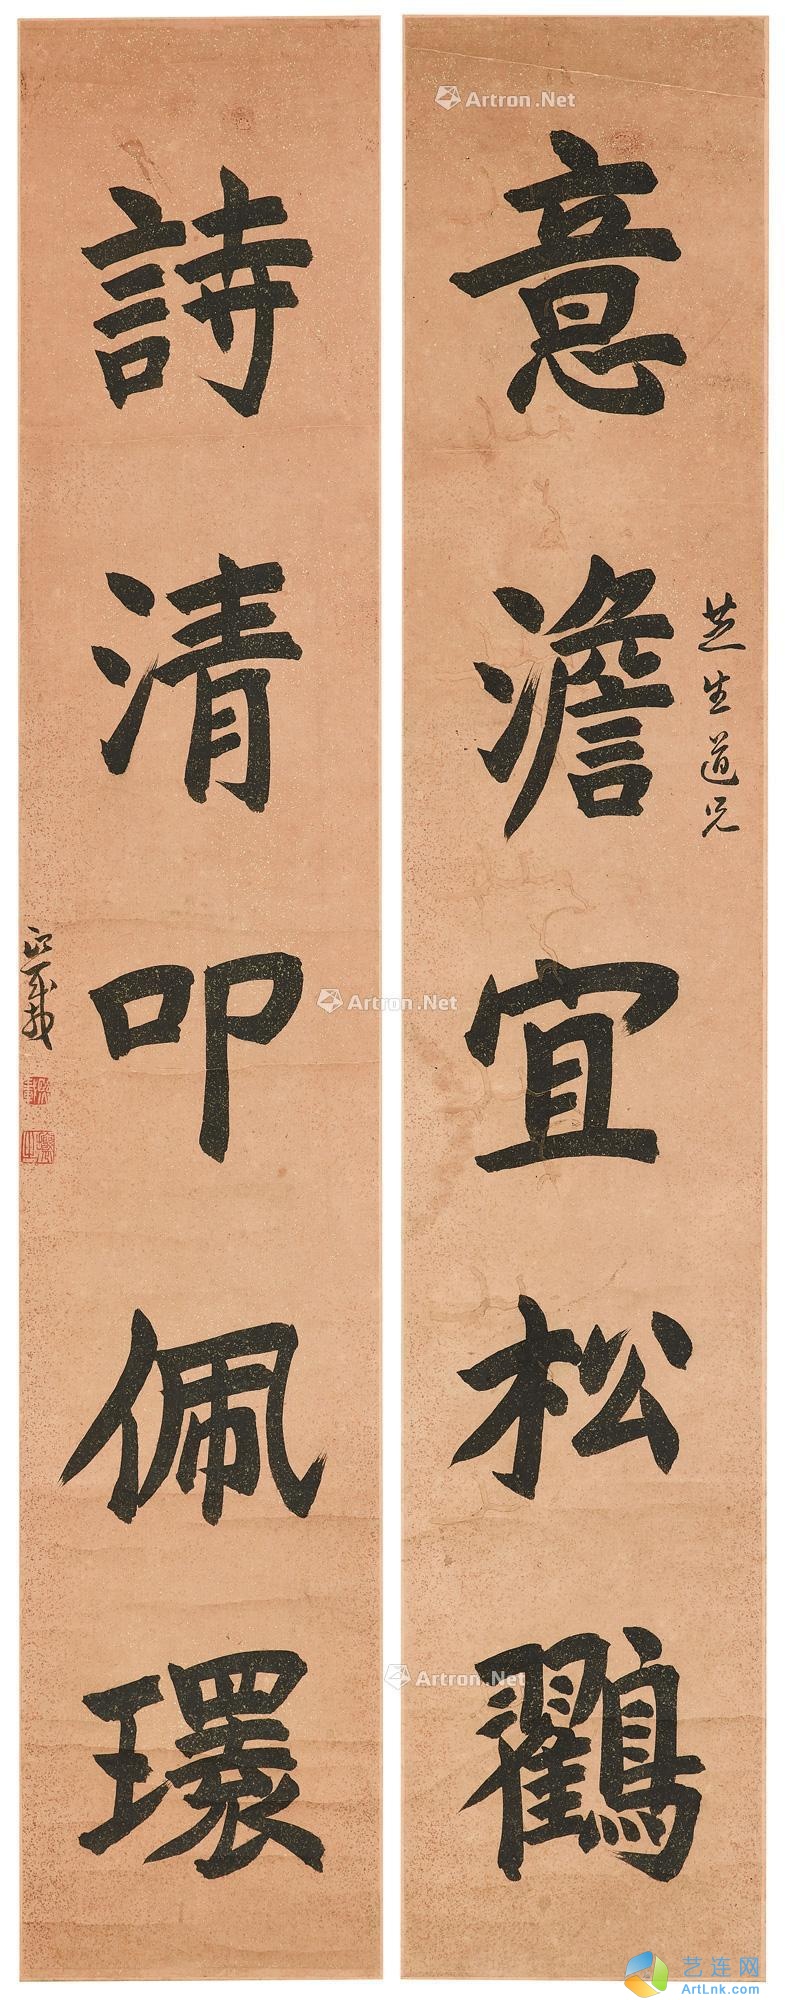 意澹宜松鶴
芝生道兄
詩清叩佩環
熙載
Artron.Net
Artron.Net
Artron.Net
艺连网
ArtLnk.com